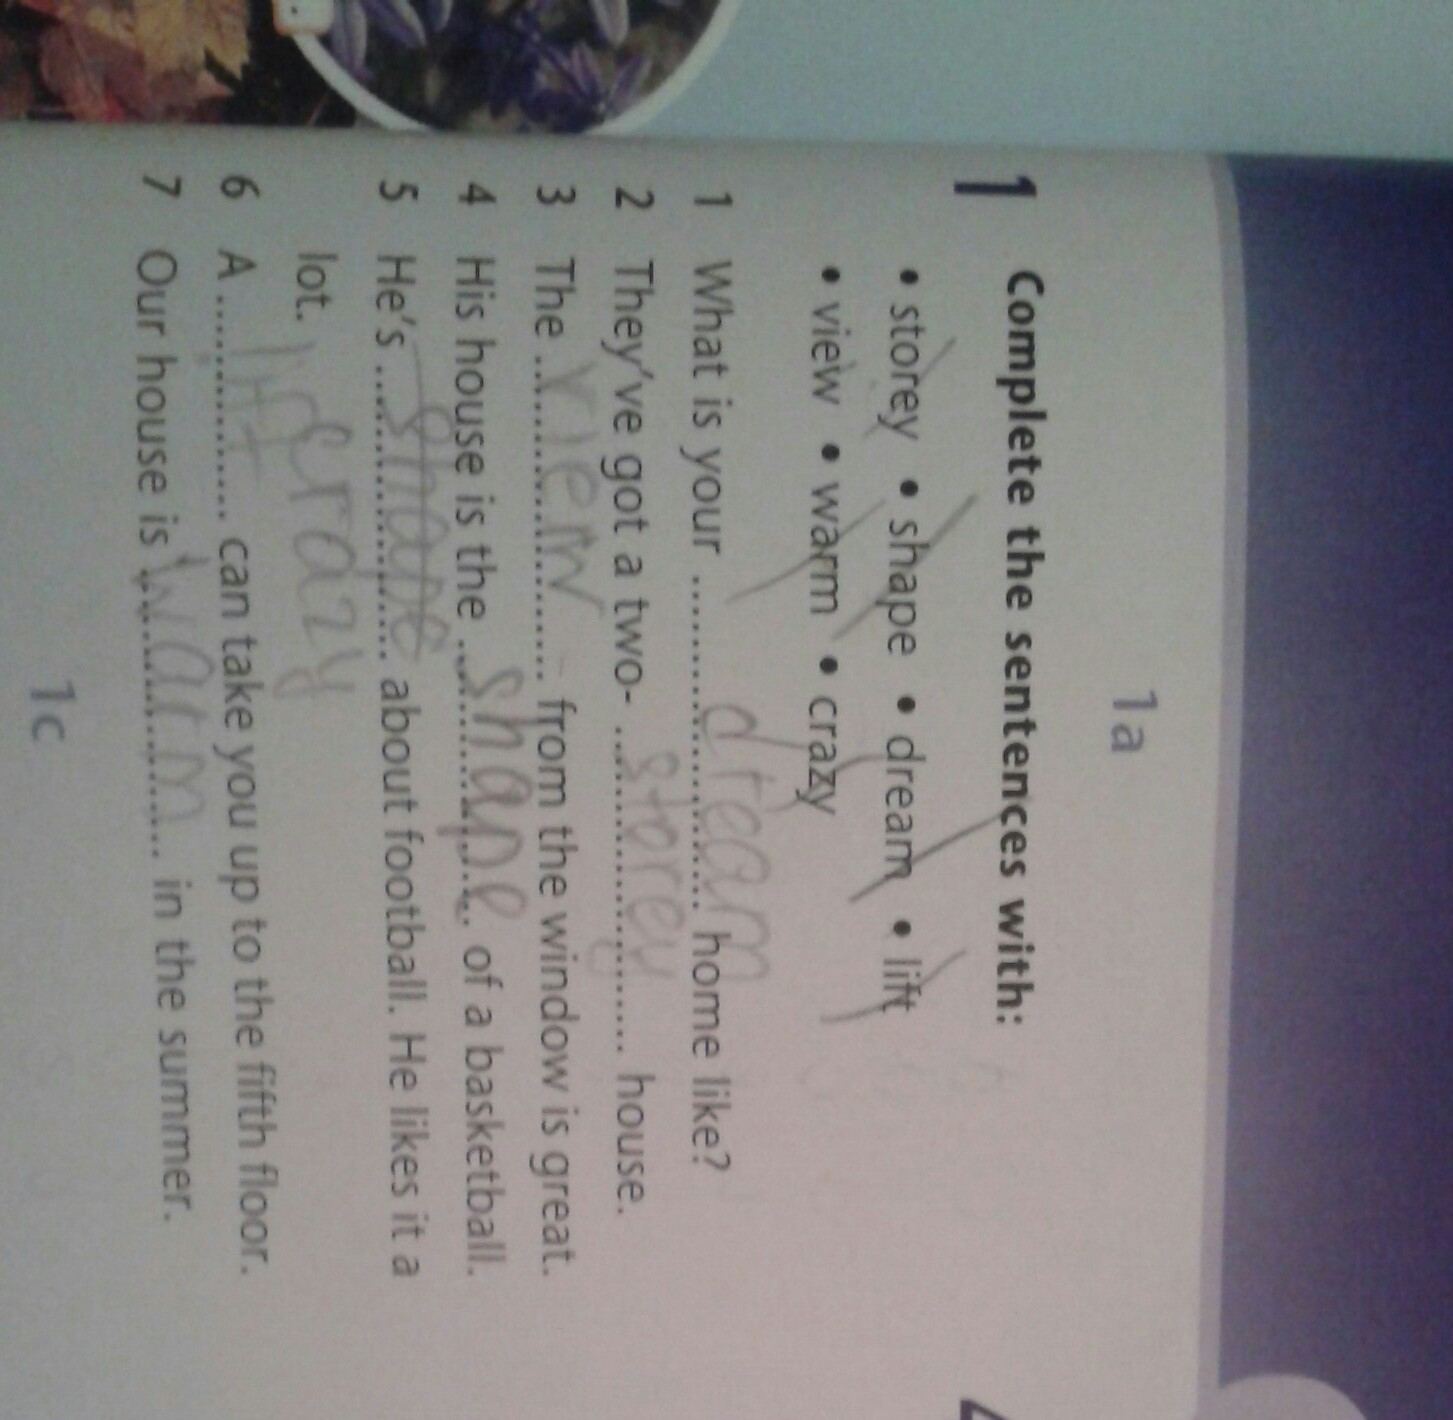 1a
1 Complete the sentences with:
• storey • shape • dream • lift
• view • warm • crazy
1 What is your ...dream... home like?
2 They've got a two- ...storey... house.
3 The ...view... from the window is great.
4 His house is the ...shape... of a basketball.
5 He's ...shape... about football. He likes it a
lot. crazy
6 A ...lift... can take you up to the fifth floor.
7 Our house is ...warm... in the summer.
1c